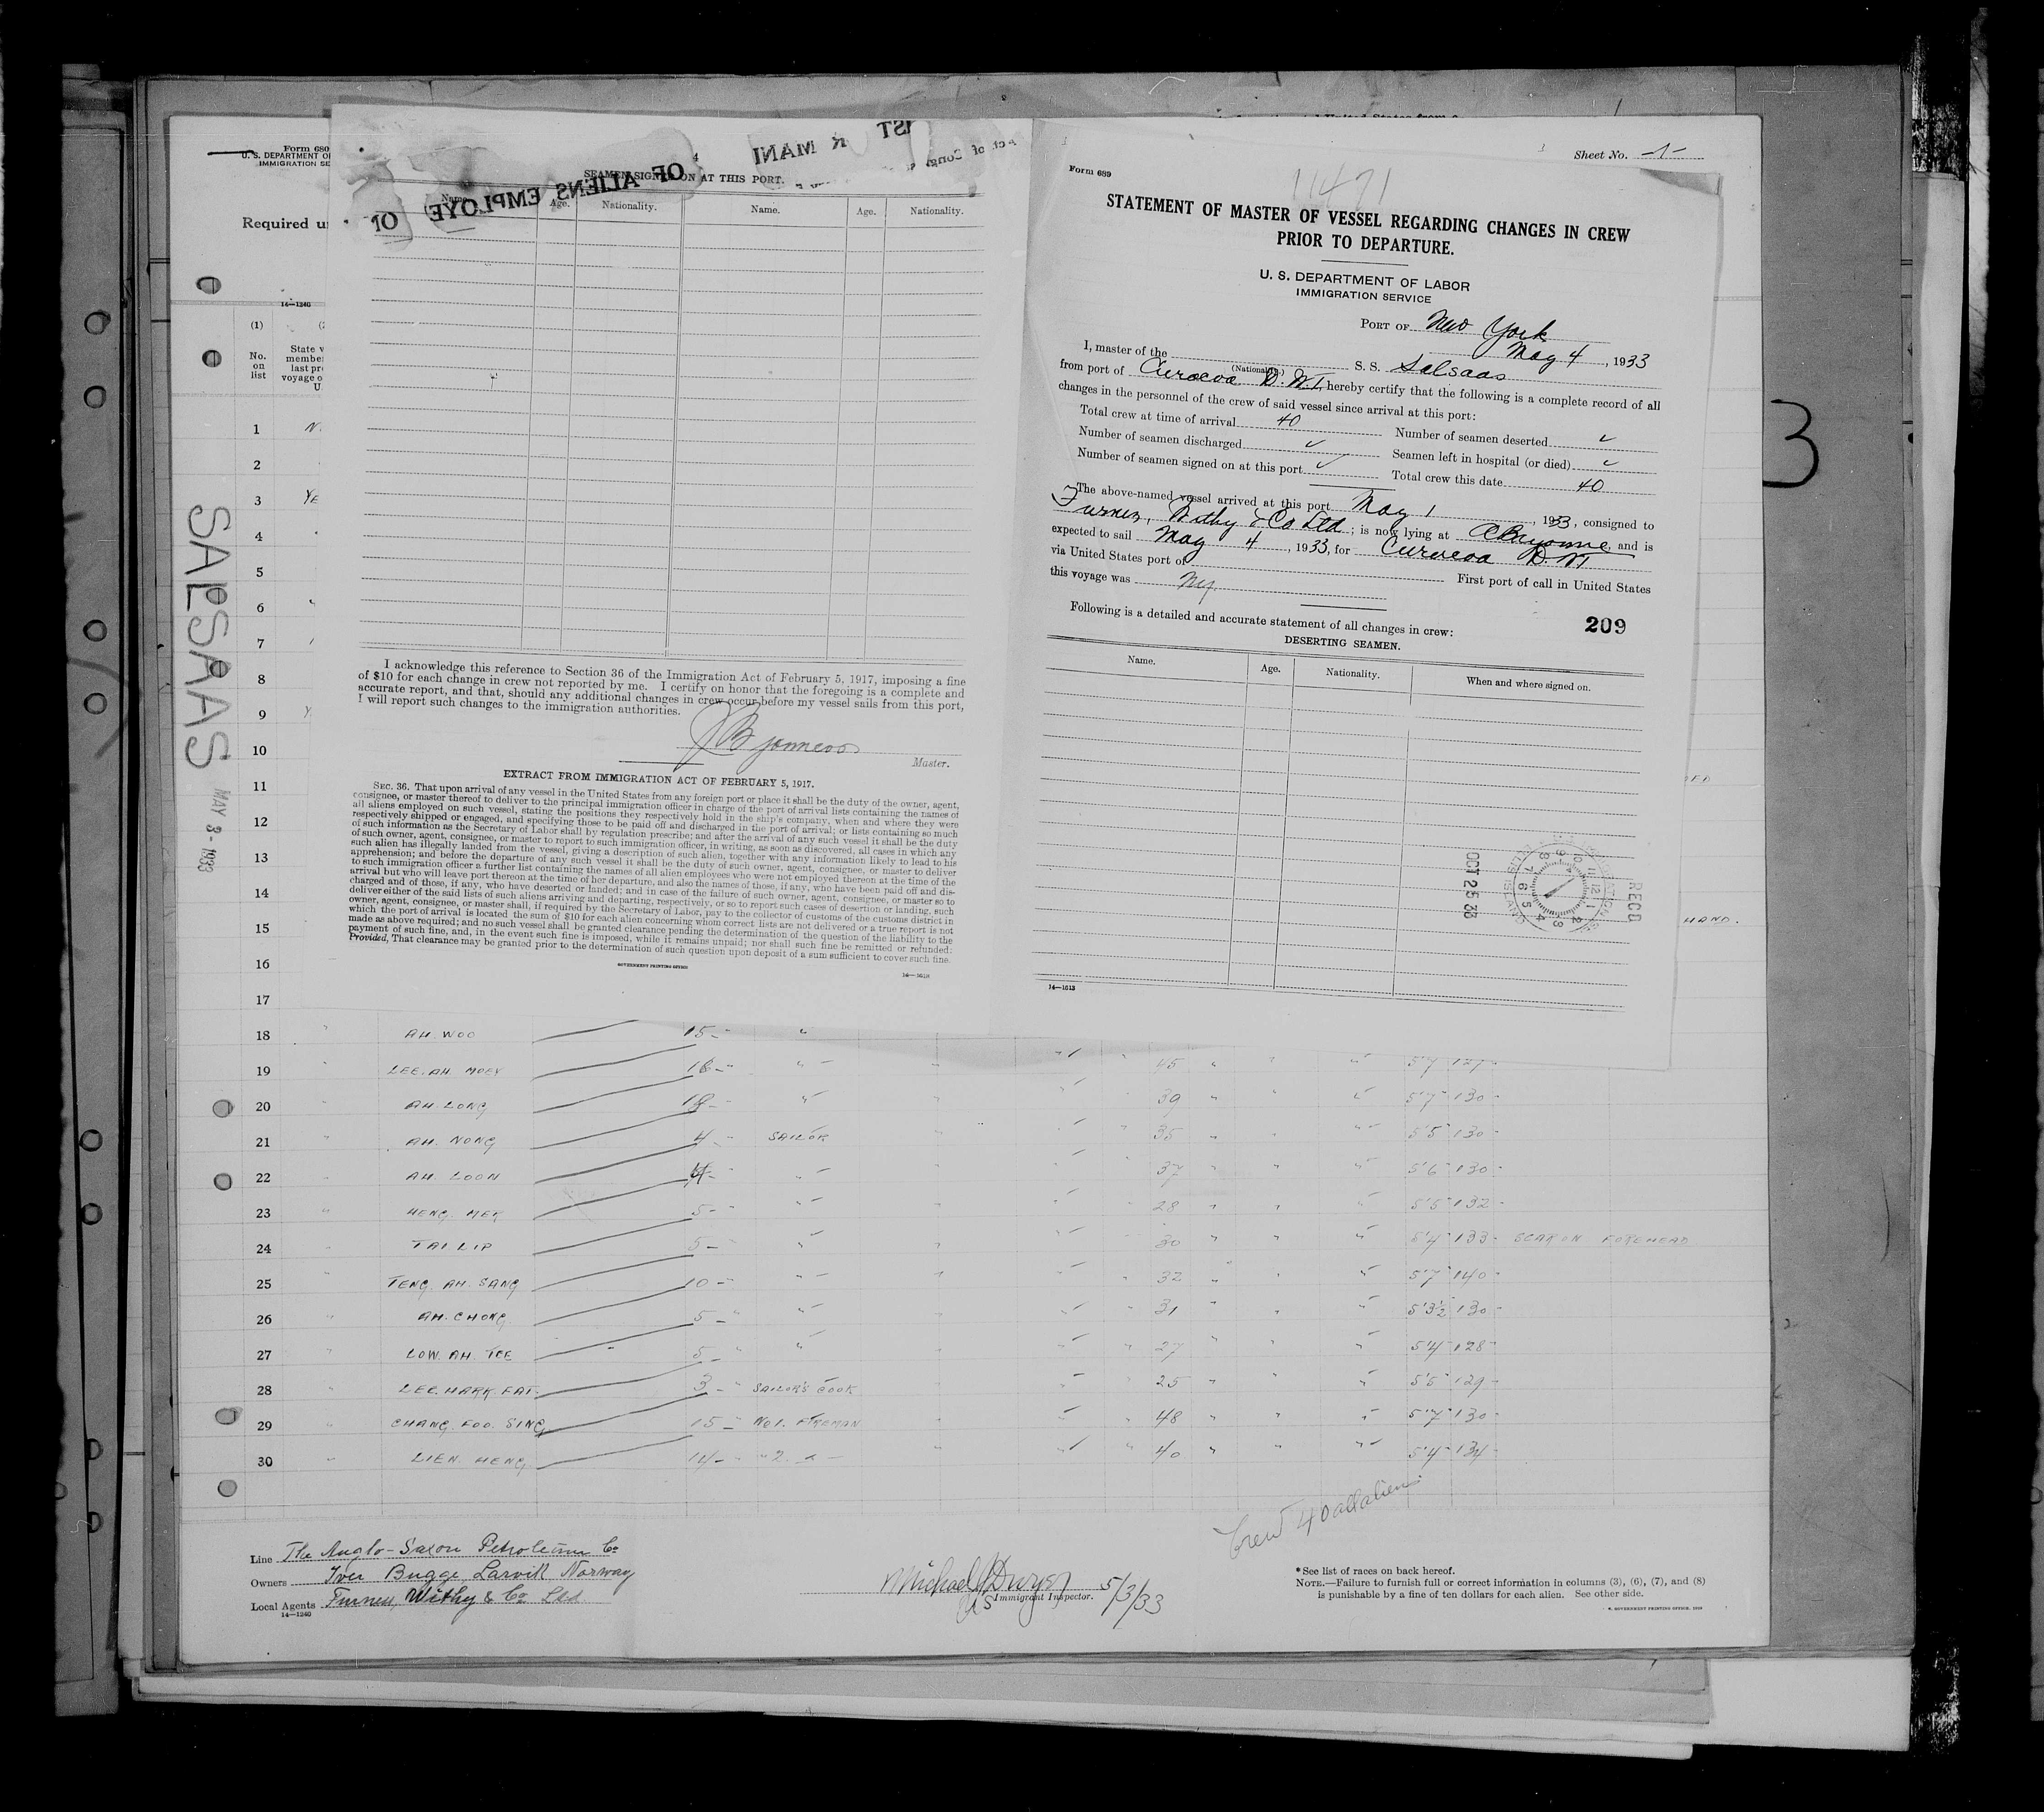 Form 680
U. S. DEPARTMENT OF
IMMIGRATION SE
Required u
14—1240
(1)
No.
on
list
State v
membe
last pr
voyage o
U.
1
2
3 YE
4
5
6
7
8
9 Y
10
11
12
13
14
15
16
17
SALSAAS MAY 3 - 1933
OF ALIENS EMPLOYE
SEAMEN SIGN ON AT THIS PORT.
Name. Age. Nationality. Name. Age. Nationality.
I acknowledge this reference to Section 36 of the Immigration Act of February 5, 1917, imposing a fine
of $10 for each change in crew not reported by me. I certify on honor that the foregoing is a complete and
accurate report, and that, should any additional changes in crew occur before my vessel sails from this port,
I will report such changes to the immigration authorities.
Master.
EXTRACT FROM IMMIGRATION ACT OF FEBRUARY 5, 1917.
SEC. 36. That upon arrival of any vessel in the United States from any foreign port or place it shall be the duty of the owner, agent,
consignee, or master thereof to deliver to the principal immigration officer in charge of the port of arrival lists containing the names of
all aliens employed on such vessel, stating the positions they respectively hold in the ship's company, when and where they were
respectively shipped or engaged, and specifying those to be paid off and discharged in the port of arrival; or lists containing so much
of such information as the Secretary of Labor shall by regulation prescribe; and after the arrival of any such vessel it shall be the duty
of such owner, agent, consignee, or master to report to such immigration officer, in writing, as soon as discovered, all cases in which any
such alien has illegally landed from the vessel, giving a description of such alien, together with any information likely to lead to his
apprehension; and before the departure of any such vessel it shall be the duty of such owner, agent, consignee, or master to deliver
to such immigration officer a further list containing the names of all alien employees who were not employed thereon at the time of the
arrival but who will leave port thereon at the time of her departure, and also the names of those, if any, who have been paid off and dis-
charged and of those, if any, who have deserted or landed; and in case of the failure of such owner, agent, consignee, or master so to
deliver either of the said lists of such aliens arriving and departing, respectively, or so to report such cases of desertion or landing, such
owner, agent, consignee, or master shall, if required by the Secretary of Labor, pay to the collector of customs of the customs district in
which the port of arrival is located the sum of $10 for each alien concerning whom correct lists are not delivered or a true report is not
made as above required; and no such vessel shall be granted clearance pending the determination of the question of the liability to the
payment of such fine, and, in the event such fine is imposed, while it remains unpaid; nor shall such fine be remitted or refunded:
Provided, That clearance may be granted prior to the determination of such question upon deposit of a sum sufficient to cover such fine.
GOVERNMENT PRINTING OFFICE
Sheet No. -1-
Form 689
11471
STATEMENT OF MASTER OF VESSEL REGARDING CHANGES IN CREW
PRIOR TO DEPARTURE.
U. S. DEPARTMENT OF LABOR
IMMIGRATION SERVICE
PORT OF New York
May 4, 1933
I, master of the (Nationality.) S. S. Salsaas
from port of Curocoa D. W. I. hereby certify that the following is a complete record of all
changes in the personnel of the crew of said vessel since arrival at this port:
Total crew at time of arrival 40 Number of seamen deserted ✓
Number of seamen discharged ✓ Seamen left in hospital (or died) ✓
Number of seamen signed on at this port ✓ Total crew this date 40
The above-named vessel arrived at this port May 1, 1933, consigned to
Furness, Withy & Co Ltd; is now lying at Bayonne, and is
expected to sail May 4, 1933, for Curocoa D. W. I
via United States port of First port of call in United States
this voyage was NY.
209
Following is a detailed and accurate statement of all changes in crew:
DESERTING SEAMEN.
Name. Age. Nationality. When and where signed on.
OCT 25 33
RECD
ELLIS ISLAND
14—1613
3
HAND.
18 AH. WOO 15 "
19 LEE. AH. MOEY 16 " 45 5'7 127
20 AH. LONG 18 " 39 5'7 130
21 AH. NONG 4 SAILOR 35 5'5 130
22 AH. LOON 4 " 37 5'6 130
23 HENG. MEK 5 " 28 5'5 132
24 TAI LIP 5 " 30 5'4 133 SCAR ON FOREHEAD
25 TENG. AH. SANG 10 " 32 5'7 140
26 AH. CHONG 5 " 31 5'3½ 130
27 LOW. AH. TEE 5 " 27 5'4 128
28 LEE. MARK. FAT. 3 " SAILOR'S COOK 25 5'5 129
29 CHANG. FOO. SING 15 " No 1. FIREMAN 48 5'7 130
30 LIEN. HENG 14 " 2. " 40 5'4 134
Crew 40 all aliens
Line The Anglo-Saxon Petroleum Co
Owners Iver Bugge, Larvik, Norway
Local Agents Furness, Withy & Co Ltd.
14—1240
Michael J Dwyer 5/3/33
US Immigrant Inspector.
* See list of races on back hereof.
NOTE.—Failure to furnish full or correct information in columns (3), (6), (7), and (8)
is punishable by a fine of ten dollars for each alien. See other side.